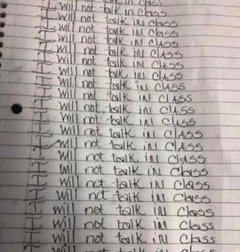 talk in class
I will not talk in class
I will not talk IN Class
I will not talk IN Class
I will not talk IN Class
I will not talk IN Class
I will not talk IN Class
I will not talk IN Class
I will not talk IN Class
I will not talk IN Class
I will not talk IN Class
I will not talk IN Class
I will not talk IN Class
I will not talk IN Class
I will not talk IN Class
I will not talk IN Class
I will not talk IN Class
I will not talk IN Class
I will not talk IN Class